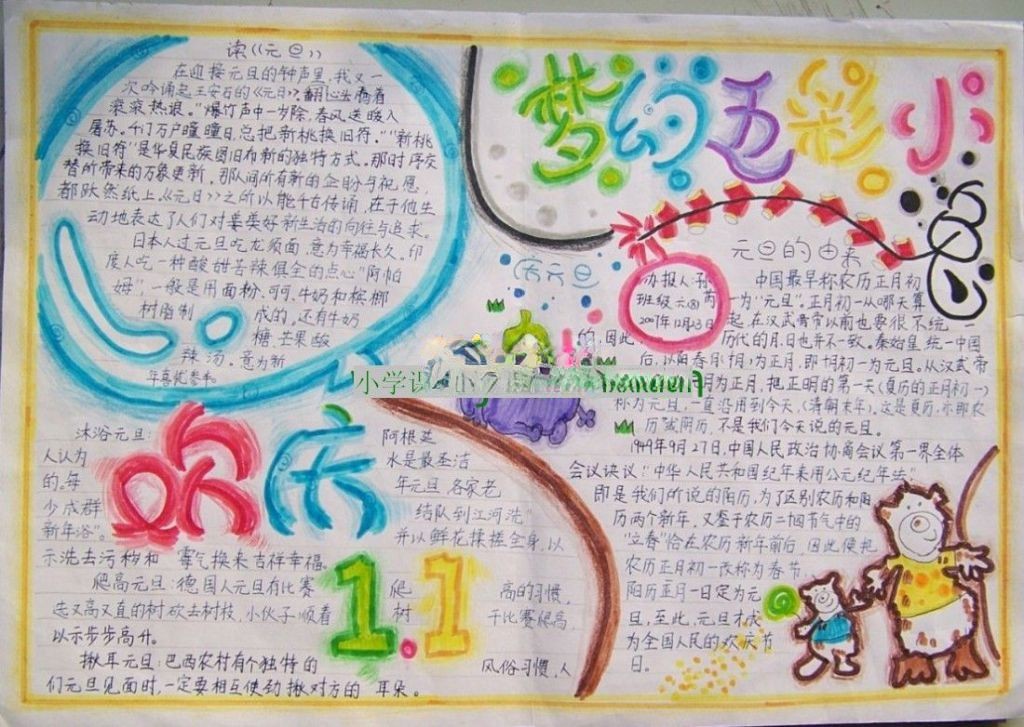 读《元旦》
在迎接元旦的钟声里，我又一
次吟诵起王安石的《元日》，翻
滚滚热浪。"爆竹声中一岁除，春风送暖入
屠苏。千门万户曈曈日，总把新桃换旧符。""新桃
换旧符"是华夏民族图旧布新的独特方式。那时序交
替所带来的万象更新，那人间所有新的企盼与祝愿，
都跃然纸上。《元日》之所以能千古传诵，在于他生
动地表达了人们对美好新生活的向往与追求。
日本人过元旦吃龙须面，意为幸福长久。印
度人吃一种酸甜苦辣俱全的点心"阿帕
姆"，一般是用面粉、可可、牛奶和槟榔
树脂制成的，还有牛奶
糖、芒果酸
辣汤，意为新
年喜忧参半。
梦幻五彩小
庆元旦
办报人：孙
班级：六③芮
2007年12月23日
元旦的由来
中国最早称农历正月初
一为"元旦"。正月初一从哪天算
起，在汉武帝以前也要很不统一
的，因此，历代的月、日也并不一致。秦始皇统一中国
后，以阳春月(十月)为正月，即十月初一为元旦。从汉武帝
月为正月，把正月的第一天(夏历的正月初一)
称为元旦，一直沿用到今天(清朝末年)。这是夏历，亦即农
历或阴历，不是我们今天说的元旦。
1949年9月27日，中国人民政治协商会议第一界全体
会议决议："中华人民共和国纪年采用公元纪年法"
即是我们所说的阳历，为了区别农历和阳
历两个新年，又鉴于农历二十四节气中的
"立春"恰在农历新年前后，因此便把
农历正月初一改称为春节，
阳历正月一日定为元
旦，至此，元旦才成
为全国人民的欢庆节
日。
小学课
欢庆
沐浴元旦：阿根廷
人认为水是最圣洁
的。每年元旦，各家老
少成群结队到江河洗"
新年浴"。并以鲜花揉搓全身，以
示洗去污秽和霉气换来吉祥幸福。
1.1
爬高元旦：德国人元旦有比赛爬高的习惯，
选又高又直的树砍去树枝，小伙子顺着树干比赛爬高，
以示步步高升。
揪耳元旦：巴西农村有个独特的风俗习惯，人
们元旦见面时，一定要相互使劲揪对方的耳朵。